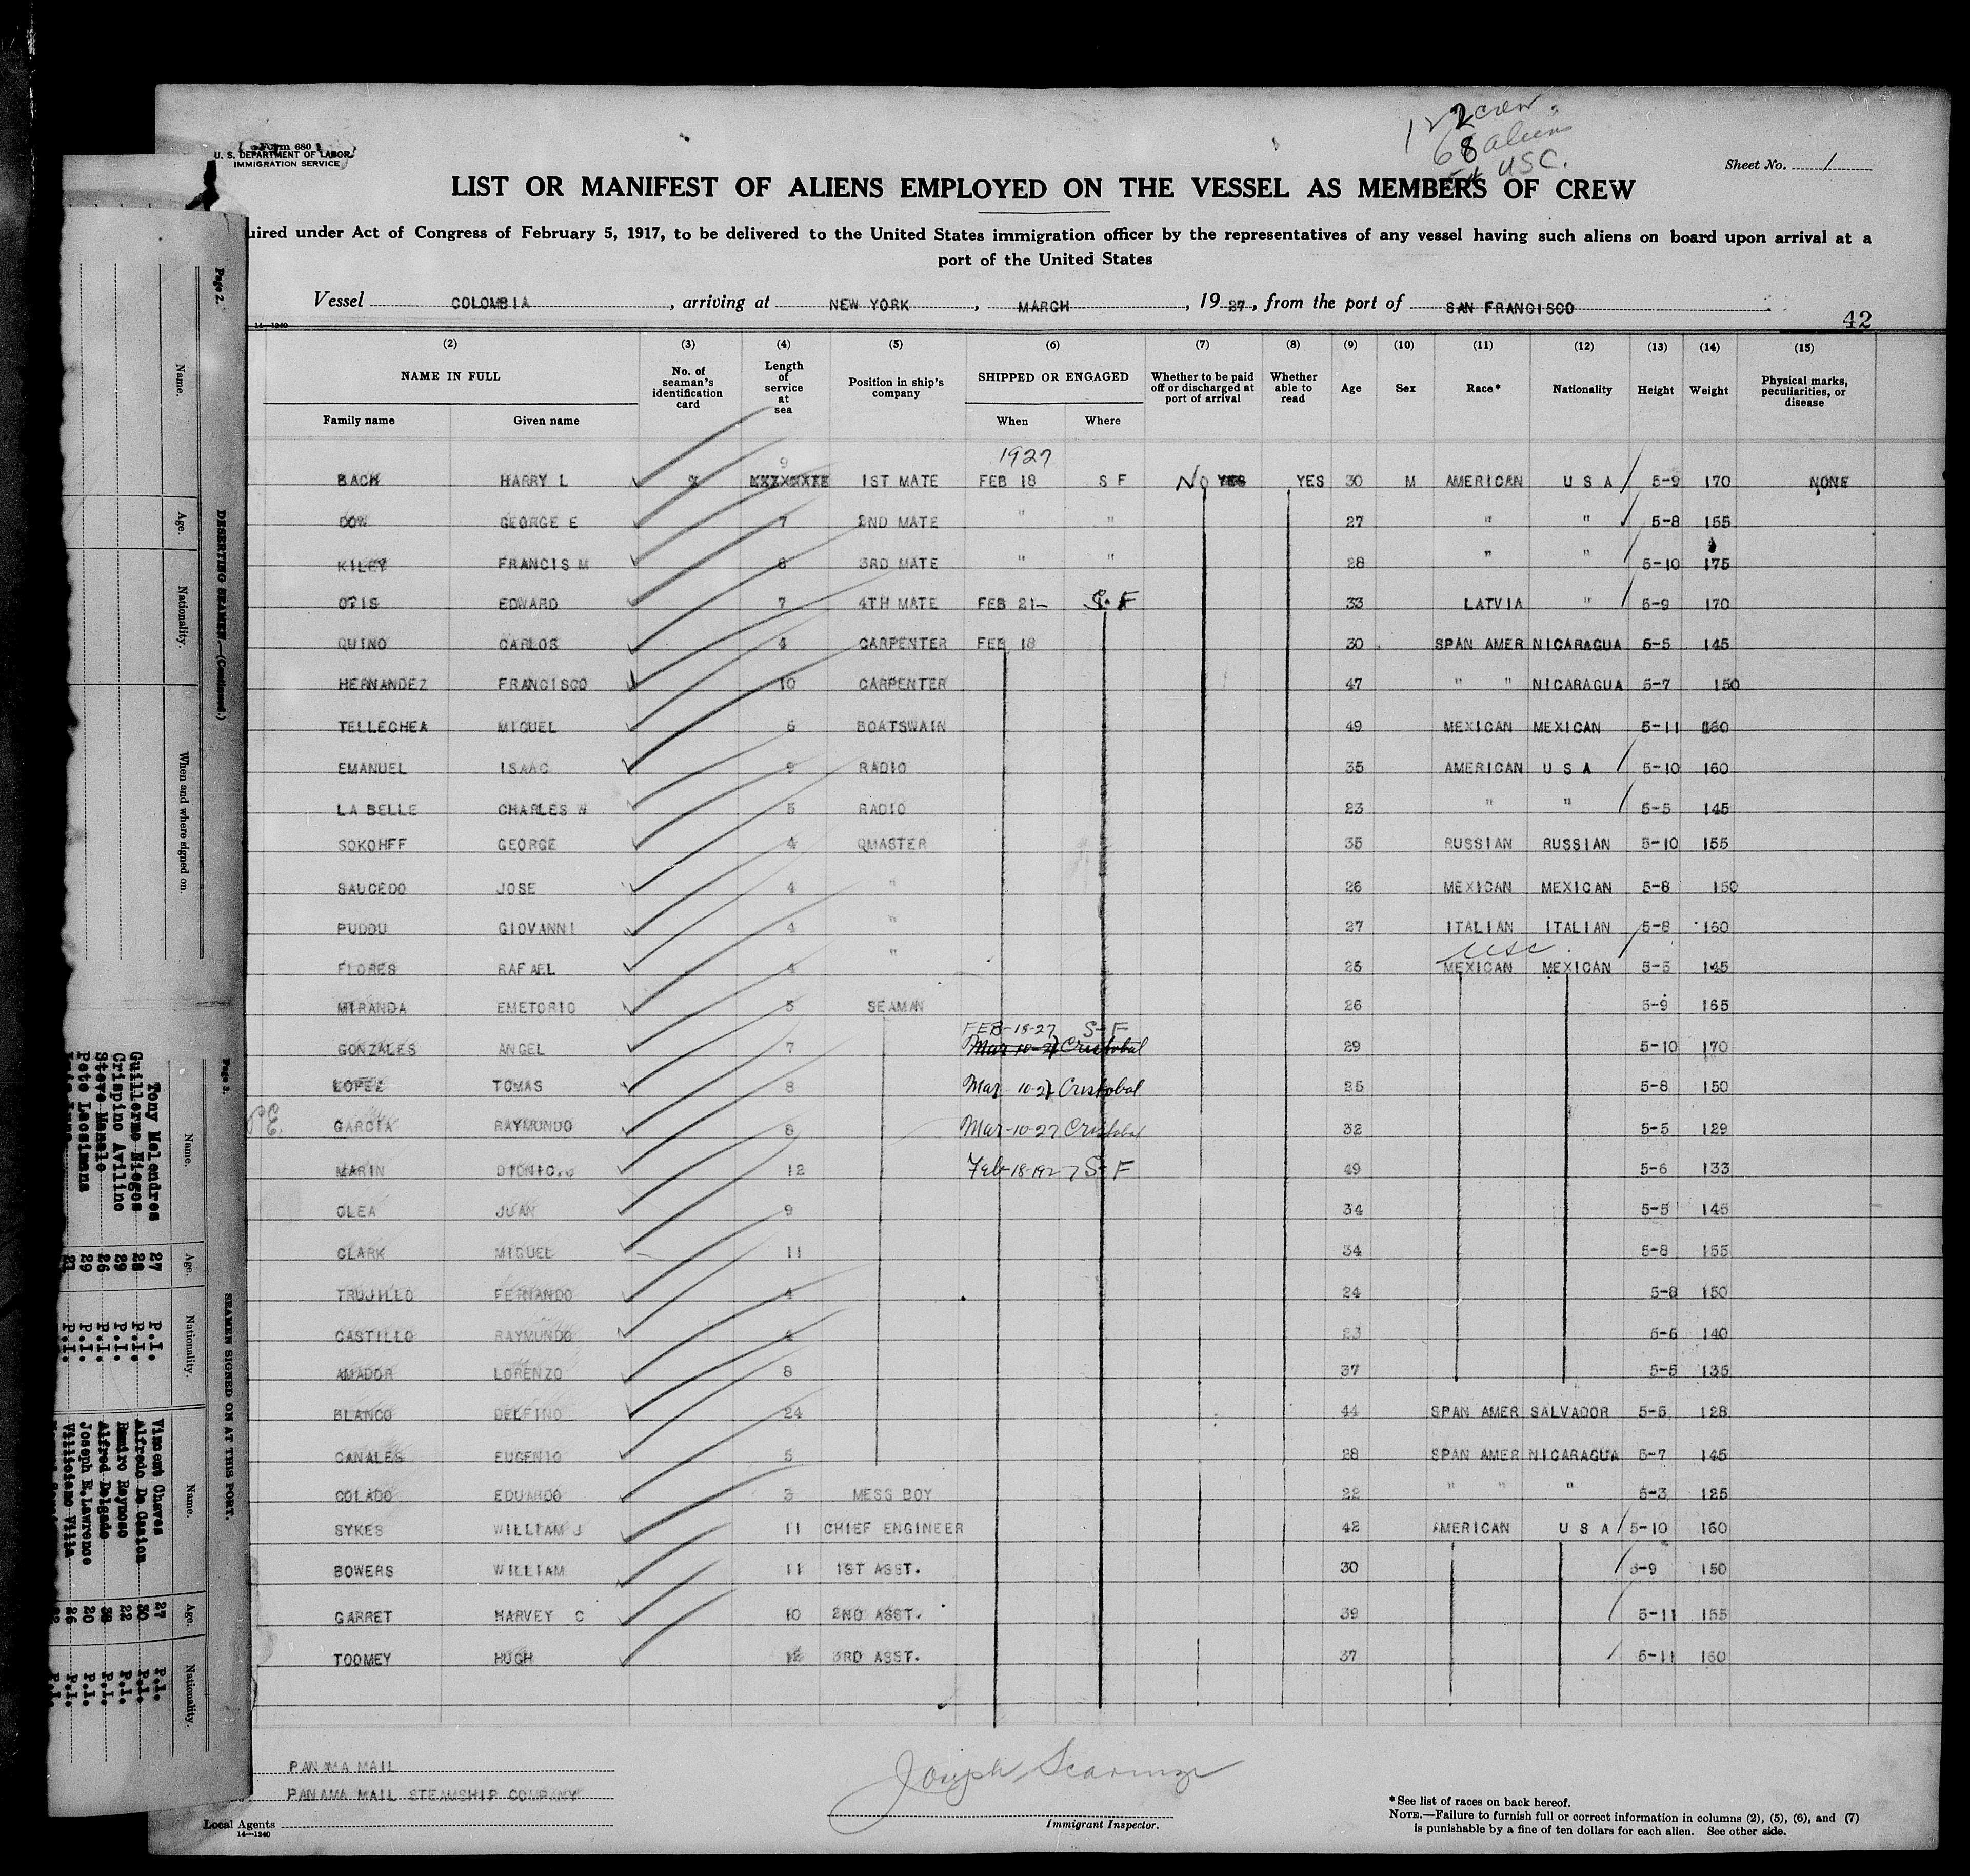 122 crew
68 aliens
54 USC.
Form 680
U. S. DEPARTMENT OF LABOR
IMMIGRATION SERVICE
Sheet No. 1
LIST OR MANIFEST OF ALIENS EMPLOYED ON THE VESSEL AS MEMBERS OF CREW
uired under Act of Congress of February 5, 1917, to be delivered to the United States immigration officer by the representatives of any vessel having such aliens on board upon arrival at a
port of the United States
Vessel COLOMBIA, arriving at NEW YORK, MARCH, 1927, from the port of SAN FRANCISCO
14—1240
42
(2) (3) (4) (5) (6) (7) (8) (9) (10) (11) (12) (13) (14) (15)
NAME IN FULL
Family name Given name
No. of seaman's identification card
Length of service at sea
Position in ship's company
SHIPPED OR ENGAGED
When Where
Whether to be paid off or discharged at port of arrival
Whether able to read
Age Sex Race* Nationality Height Weight
Physical marks, peculiarities, or disease
9 1927
BACH HARRY L 1ST MATE FEB 18 S F No YES YES 30 M AMERICAN U S A 5-9 170 NONE
DOW GEORGE E 7 2ND MATE " " 27 " " 5-8 155
KILEY FRANCIS M 8 3RD MATE " " 28 " " 5-10 175
OTIS EDWARD 7 4TH MATE FEB 21- S. F 33 LATVIA " 5-9 170
QUINO CARLOS 4 CARPENTER FEB 18 30 SPAN AMER NICARAGUA 5-5 145
HERNANDEZ FRANCISCO 10 CARPENTER 47 " " NICARAGUA 5-7 150
TELLECHEA MIGUEL 6 BOATSWAIN 49 MEXICAN MEXICAN 5-11 160
EMANUEL ISAAC 9 RADIO 35 AMERICAN U S A 5-10 160
LA BELLE CHARLES W 5 RADIO 23 " " 5-5 145
SOKOHFF GEORGE 4 QMASTER 35 RUSSIAN RUSSIAN 5-10 155
SAUCEDO JOSE 4 " 26 MEXICAN MEXICAN 5-8 150
PUDDU GIOVANNI 4 " 27 ITALIAN ITALIAN 5-8 160
USC
FLORES RAFAEL 4 " 25 MEXICAN MEXICAN 5-5 145
MIRANDA EMETORIO 5 SEAMAN 26 5-9 165
FEB-18-27 S-F
GONZALES ANGEL 7 Mar 10-27 Cristobal 29 5-10 170
LOPEZ TOMAS 8 Mar 10-27 Cristobal 25 5-8 150
GARCIA RAYMUNDO 8 Mar-10-27 Cristobal 32 5-5 129
MARIN 12 Feb-18-1927 S-F 49 5-6 133
OLEA JUAN 9 34 5-5 145
CLARK MIGUEL 11 34 5-8 155
TRUJILLO FERNANDO 4 24 5-8 150
CASTILLO RAYMUNDO 4 23 5-6 140
AMADOR LORENZO 8 37 5-5 135
BLANCO DELFINO 24 44 SPAN AMER SALVADOR 5-5 128
CANALES EUGENIO 5 28 SPAN AMER NICARAGUA 5-7 145
COLADO EDUARDO 3 MESS BOY 22 " " " 5-3 125
SYKES WILLIAM J 11 CHIEF ENGINEER 42 AMERICAN U S A 5-10 160
BOWERS WILLIAM 11 1ST ASST. 30 5-9 150
GARRET HARVEY C 10 2ND ASST. 39 5-11 155
TOOMEY HUGH 12 3RD ASST. 37 5-11 160
PANAMA MAIL
PANAMA MAIL STEAMSHIP COMPANY
Local Agents
14—1240
Joseph
Immigrant Inspector.
*See list of races on back hereof.
NOTE.—Failure to furnish full or correct information in columns (2), (5), (6), and (7)
is punishable by a fine of ten dollars for each alien. See other side.
Page 2.
DESERTING SEAMEN—(Continued.)
Name. Age. Nationality. When and where signed on.
Page 3.
SEAMEN SIGNED ON AT THIS PORT.
Name. Age. Nationality. Name. Age. Nationality.
Tony Melendres 27 P.I. Vincent Chaves 27 P.I.
Guillermo Niegos 28 P.I. Alfredo De Casion 30 P.I.
Crispino Avilino 29 P.I. Ramiro Reynoso 22 P.I.
Steve Manselo 26 P.I. Alfred Delgado P.I.
Pete Lacsimana 29 P.I. Joseph E.Lawrence 20 P.I.
21 P.I. Villiciano Villa 26 P.I.